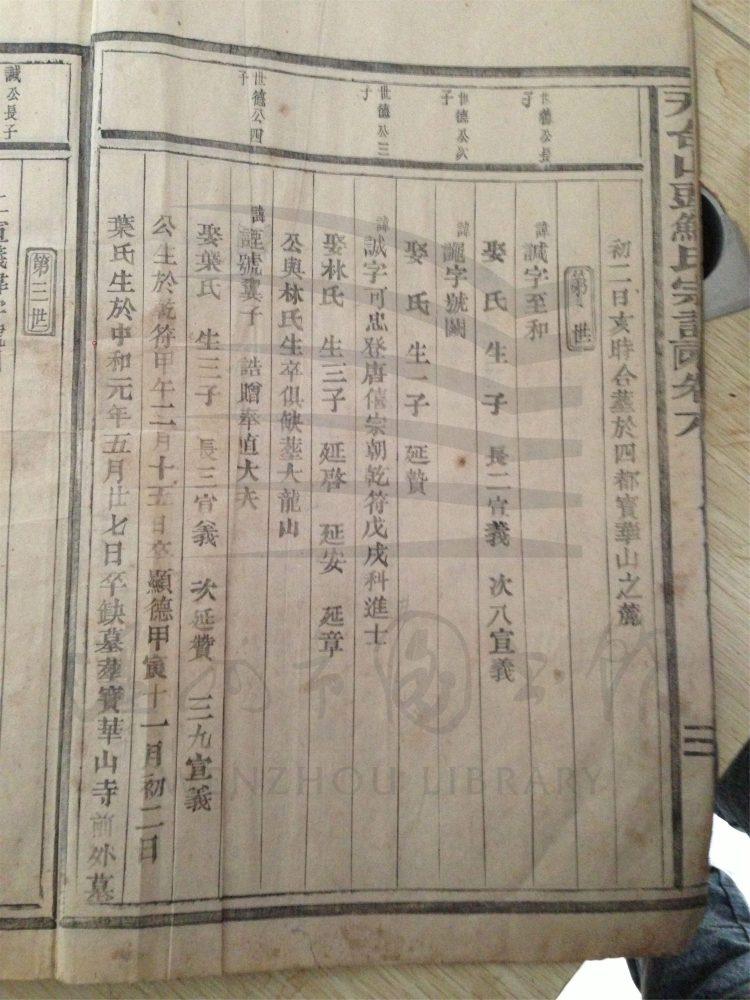 天台山頭蘇氏宗譜卷八
三
初二日亥時合墓於四都寶華山之麓
第 世
世德公長子
諱誠字至和
娶 氏 生 子 長二宣義 次八宣義
世德公次子
諱 字號闕
娶 氏 生一子 延贊
世德公三子
諱誠字可忠登唐僖宗朝乾符戊戌科進士
娶林氏 生三子 延啓 延安 延章
公與林氏生卒俱缺墓大龍山
世德公四子
諱 號翼子 誥贈奉直大夫
娶葉氏 生三子 長三宣義 次延贊 三九宣義
公生於乾符甲午二月十五日卒顯德甲寅十一月初二日
葉氏生於中和元年五月廿七日卒缺墓葬寶華山寺前外墓
第三世
誠公長子
WENZHOU LIBRARY